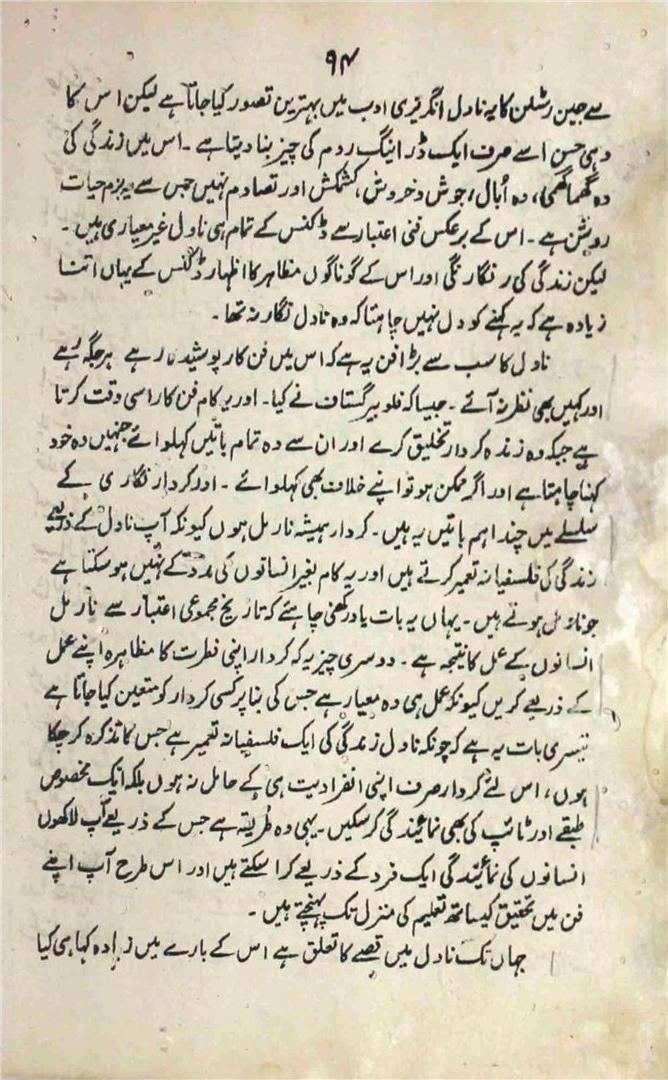 ۹۴
سے جین رسٹن کا یہ ناول انگریزی ادب میں بہترین تصور کیا جاتا ہے لیکن اس کا
وہی حسن اسے صرف ایک ڈرائینگ روم کی چیز بنا دیتا ہے ۔ اس میں زندگی کی
وہ گھما گھمی، وہ اُبال، جوش و خروش، کشمکش اور تصادم نہیں جس سے یہ بزم حیات
روشن ہے ۔ اس کے برعکس فنی اعتبار سے ڈکنس کے تمام ہی ناول غیر معیاری ہیں ۔
لیکن زندگی کی رنگا رنگی اور اس کے گوناگوں مظاہر کا اظہار ڈکنس کے یہاں اتنا
زیادہ ہے کہ یہ کہنے کو دل نہیں چاہتا کہ وہ ناول نگار نہ تھا ۔
ناول کا سب سے بڑا فن یہ ہے کہ اس میں فن کار پوشیدہ رہے ہر جگہ رہے
اور کہیں بھی نظر نہ آئے ۔ جیسا کہ فلوبیر گستاف نے کیا ۔ اور یہ کام فن کار اسی وقت کرتا
ہے جبکہ وہ زندہ کردار تخلیق کرے اور ان سے وہ تمام باتیں کہلوائے جنہیں وہ خود
کہنا چاہتا ہے اور اگر ممکن ہو تو اپنے خلاف بھی کہلوائے ۔ اور کردار نگاری کے
سلسلے میں چند اہم باتیں یہ ہیں ۔ کردار ہمیشہ نارمل ہوں کیونکہ آپ ناول کے ذریعے
زندگی کی فلسفیانہ تعمیر کرتے ہیں اور یہ کام بغیر انسانوں کی مدد کے نہیں ہو سکتا ہے
جو نارمل ہوتے ہیں ۔ یہاں یہ بات یاد رکھنی چاہئے کہ تاریخ مجموعی اعتبار سے نارمل
انسانوں کے عمل کا نتیجہ ہے ۔ دوسری چیز یہ کہ کردار اپنی فطرت کا مظاہرہ اپنے عمل
کے ذریعے کریں کیونکہ عمل ہی وہ معیار ہے جس کی بنا پر کسی کردار کو متعین کیا جاتا ہے
تیسری بات یہ ہے کہ چونکہ ناول زندگی کی ایک فلسفیانہ تعمیر ہے جس کا تذکرہ کر چکا
ہوں، اس لئے کردار صرف اپنی انفرادیت ہی کے حامل نہ ہوں بلکہ ایک مخصوص
طبقے اور ٹائپ کی بھی نمائیندگی کر سکیں ۔ یہی وہ طریقہ ہے جس کے ذریعے آپ لاکھوں
انسانوں کی نمائیندگی ایک فرد کے ذریعے کرا سکتے ہیں اور اس طرح آپ اپنے
فن میں تحقیق کیساتھ تعلیم کی منزل تک پہنچتے ہیں ۔
جہاں تک ناول میں قصے کا تعلق ہے اس کے بارے میں زیادہ کہا ہی کیا